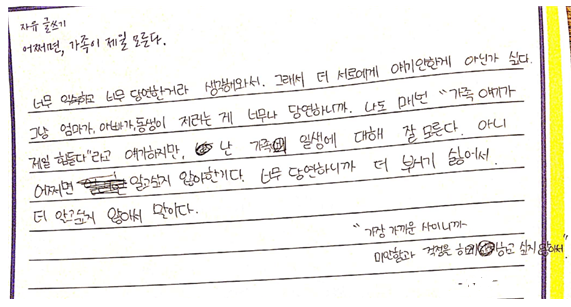 자유 글쓰기
어쩌면, 가족이 제일 모른다.
너무 익숙하고 너무 당연한거라 생각해와서. 그래서 더 서로에게 얘기안한게 아닌가 싶다.
그냥 엄마가, 아빠가, 동생이 저러는 게 너무나 당연하니까. 나도 매번 "가족 얘기가
제일 힘들다"라고 얘기하지만, 난 가족의 일생에 대해 잘 모른다. 아니
어쩌면 알고싶지 않아한거다. 너무 당연하니까 더 싫어서.
더 알고싶지 않아서 말이다.
"가장 가까운 사이니까
미안함과 걱정은 하고 싶지 않아서"
....